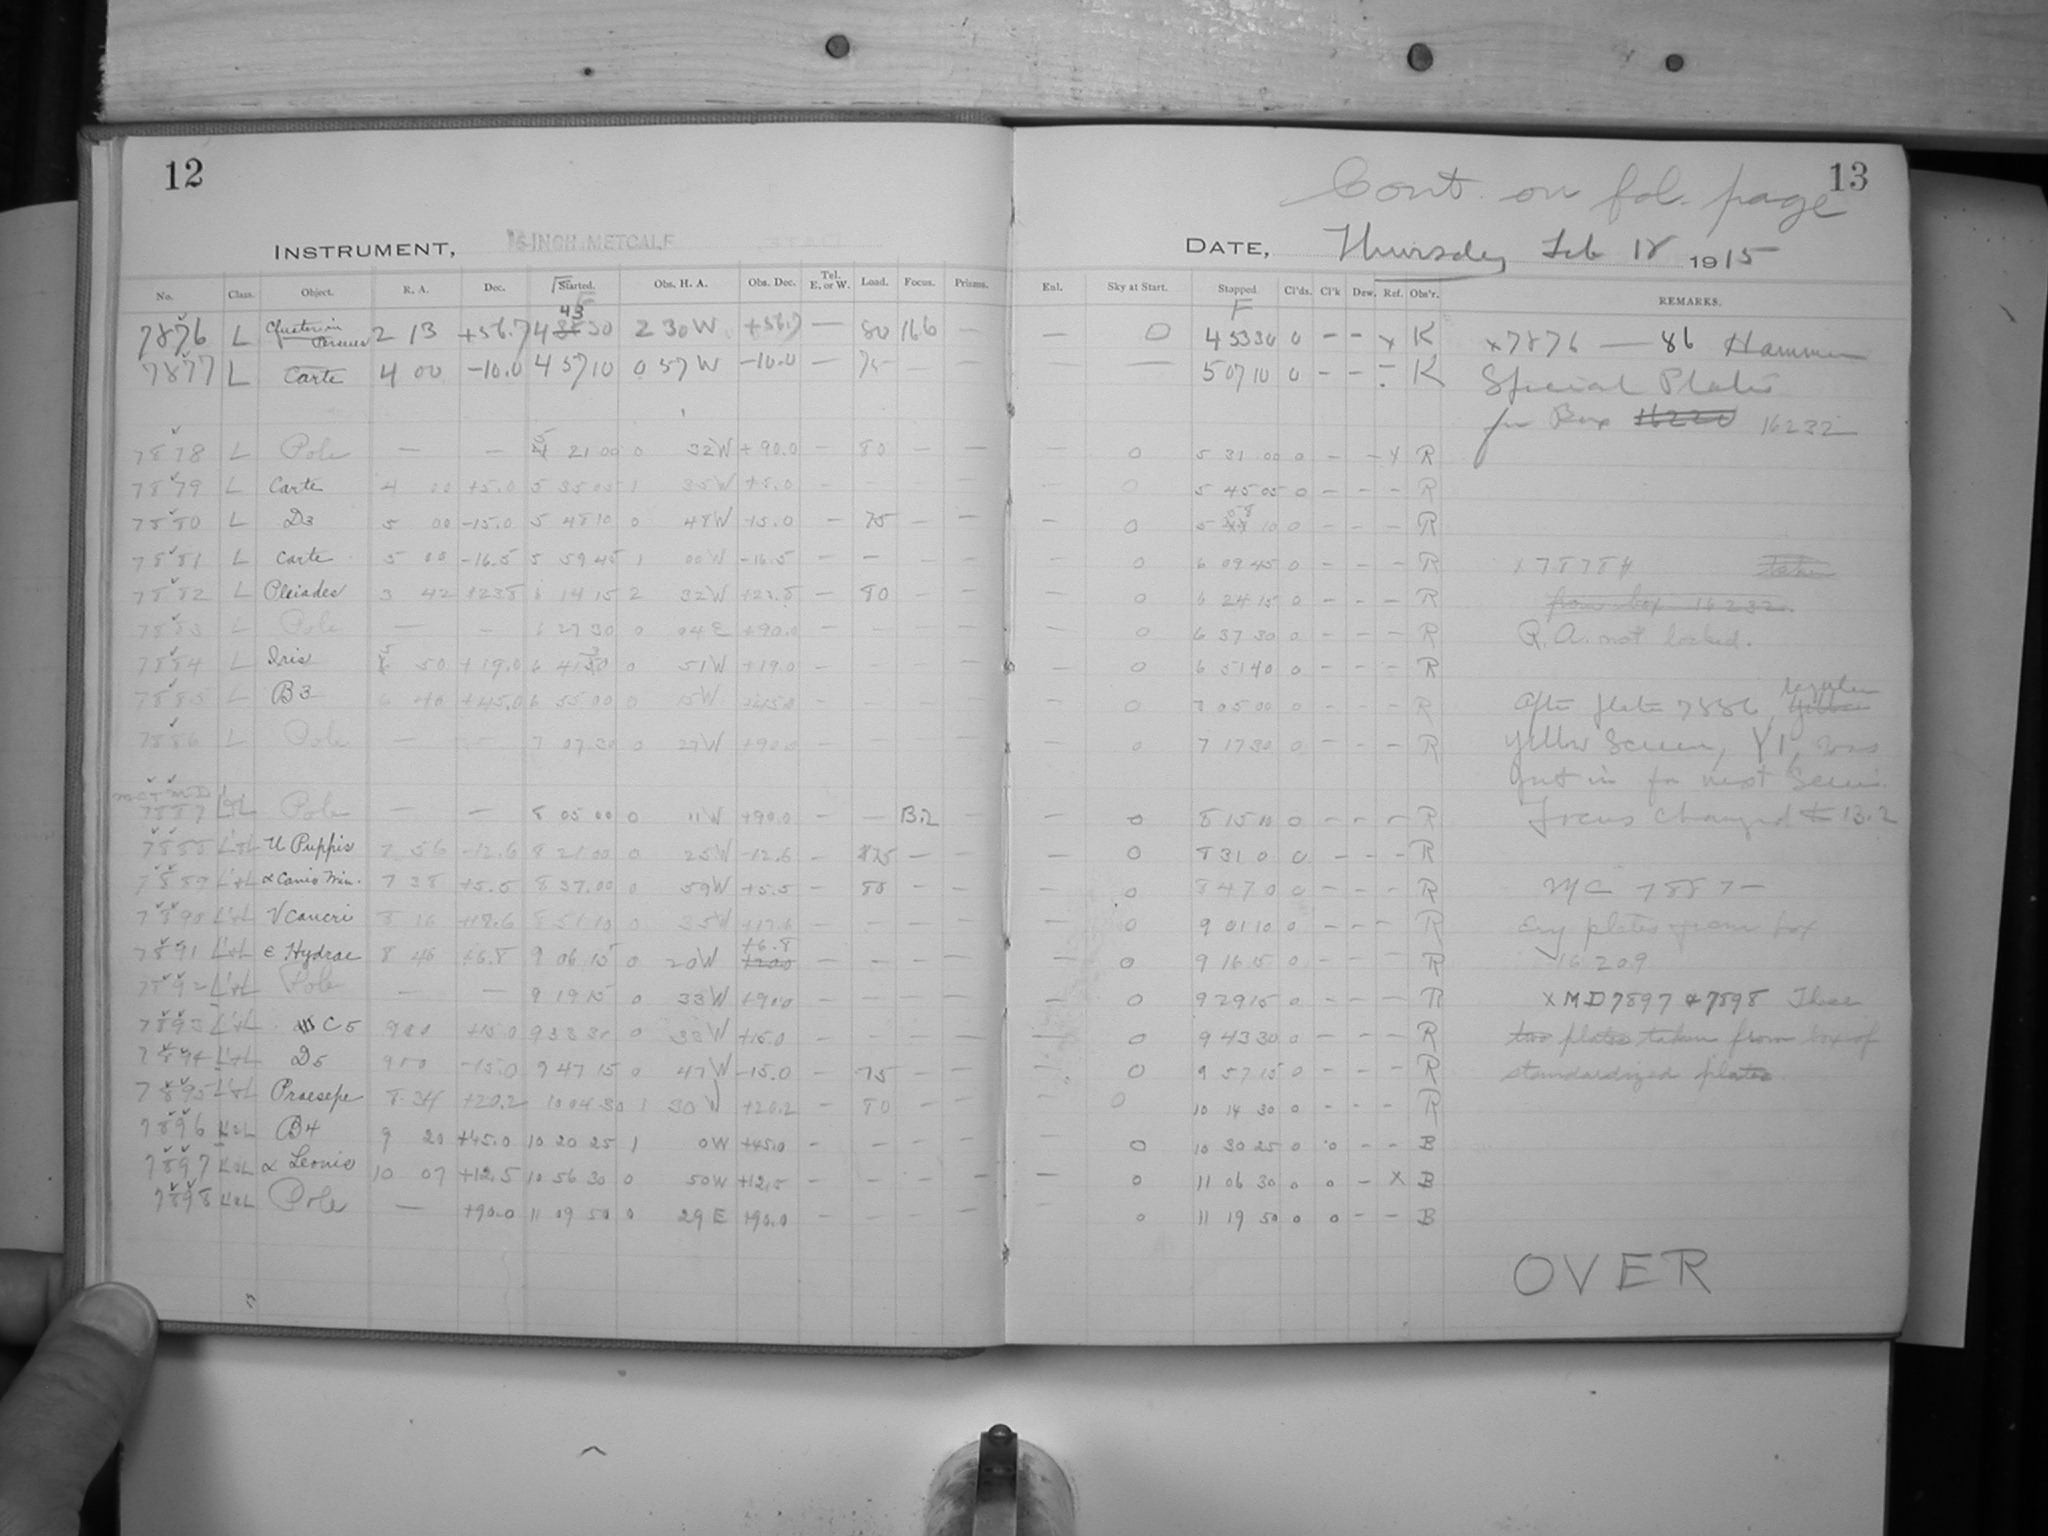 12
INSTRUMENT, 16 INCH METCALF
No. Class. Object. R. A. Dec. Started. Obs. H. A. Obs. Dec. Tel. E. or W. Load. Focus. Prisms.
7876 L Cluster in Perseus 2 13 +56.7 4 43 30 2 30 W +56.7 — 80 16.6 —
7877 L Carte 4 00 -10.0 4 57 10 0 57 W -10.0 — 75 —
7878 L Pole — — 5 21 00 0 32 W +90.0 — 80 — —
7879 L Carte 4 00 +5.0 5 35 05 1 35 W +5.0 — — — —
7880 L D3 5 00 -15.0 5 48 10 0 48 W +5.0 — 75 — —
7881 L Carte 5 00 -16.5 5 59 45 1 00 W -16.5 — — — —
7882 L Pleiades 3 42 +23.8 6 14 15 2 32 W +23.8 — 80 — —
7883 L Pole — — 6 27 30 0 04 E +90.0 — — — —
7884 L Iris 5 50 +19.0 6 41 0 51 W +19.0 — — — —
7885 L B3 6 40 +45.0 6 55 00 0 15 W — — — —
7886 L Pole — — 7 07 30 0 27 W +90.0 — — — —
MC + MD
7887 L'+L Pole — — 8 05 00 0 11 W +90.0 — — 13.2 —
7888 L'+L U Puppis 7 56 -12.6 8 21 00 0 25 W -12.6 — 75 — —
7889 L'+L α Canis Min. 7 38 +5.5 8 37 00 0 59 W +5.5 — 80 — —
7890 L'+L V Cancri 8 16 +17.6 8 51 10 0 35 W +17.6 — — — —
7891 L'+L ε Hydrae 8 46 +6.8 9 06 15 0 20 W +6.8 — — — —
7892 L'+L Pole — — 9 19 15 0 33 W +90.0 — — — —
7893 L'+L C5 9 00 +15.0 9 33 30 0 33 W +15.0 — — — —
7894 L'+L D5 9 00 -15.0 9 47 15 0 47 W -15.0 — 75 — —
7895 L'+L Praesepe 8 34 +20.2 10 04 30 1 30 W +20.2 — 80 — —
7896 L'&L B4 9 20 +45.0 10 20 25 1 0 W +45.0 — — — —
7897 L'&L α Leonis 10 07 +12.5 10 56 30 0 50 W +12.5 — — — —
7898 L'&L Pole — +90.0 11 09 50 0 29 E +90.0 — — — —
13
Cont. on fol. page
DATE, Thursday Feb 18 1915
Enl. Sky at Start. Stopped Cl'ds. Cl'k Dew. Ref. Obs'r. REMARKS.
— 0 4 53 30 0 — — x K x7876 — 86 Hammer
— — 5 07 10 0 — — — K Special Plates
for Box 16220 16232
— 0 5 31 00 0 — — x R
0 5 45 05 0 — — — R
— 0 5 58 10 0 — — — R
— 0 6 09 45 0 — — — R x 7878 taken
— 0 6 24 15 0 — — — R from box 16232.
— 0 6 37 30 0 — — — R R.A. not locked.
— 0 6 51 40 0 — — — R
— 0 7 05 00 0 — — — R After plate 7886, regular
— 0 7 17 30 0 — — — R yellow screen, Y1, was
put in for next Series.
— 0 8 15 10 0 — — — R Focus changed to 13.2
— 0 8 31 0 0 — — — R
— 0 8 47 0 0 — — — R MC 7887—
— 0 9 01 10 0 — — — R plates from box
— 0 9 16 15 0 — — — R 16209
— 0 9 29 15 0 — — — R x MD7897 & 7898 These
— 0 9 43 30 0 — — — R two plates taken from box of
— 0 9 57 15 0 — — — R standardized plates.
— 0 10 14 30 0 — — — R
0 10 30 25 0 0 — — B
— 0 11 06 30 0 0 — x B
— 0 11 19 50 0 0 — — B
OVER